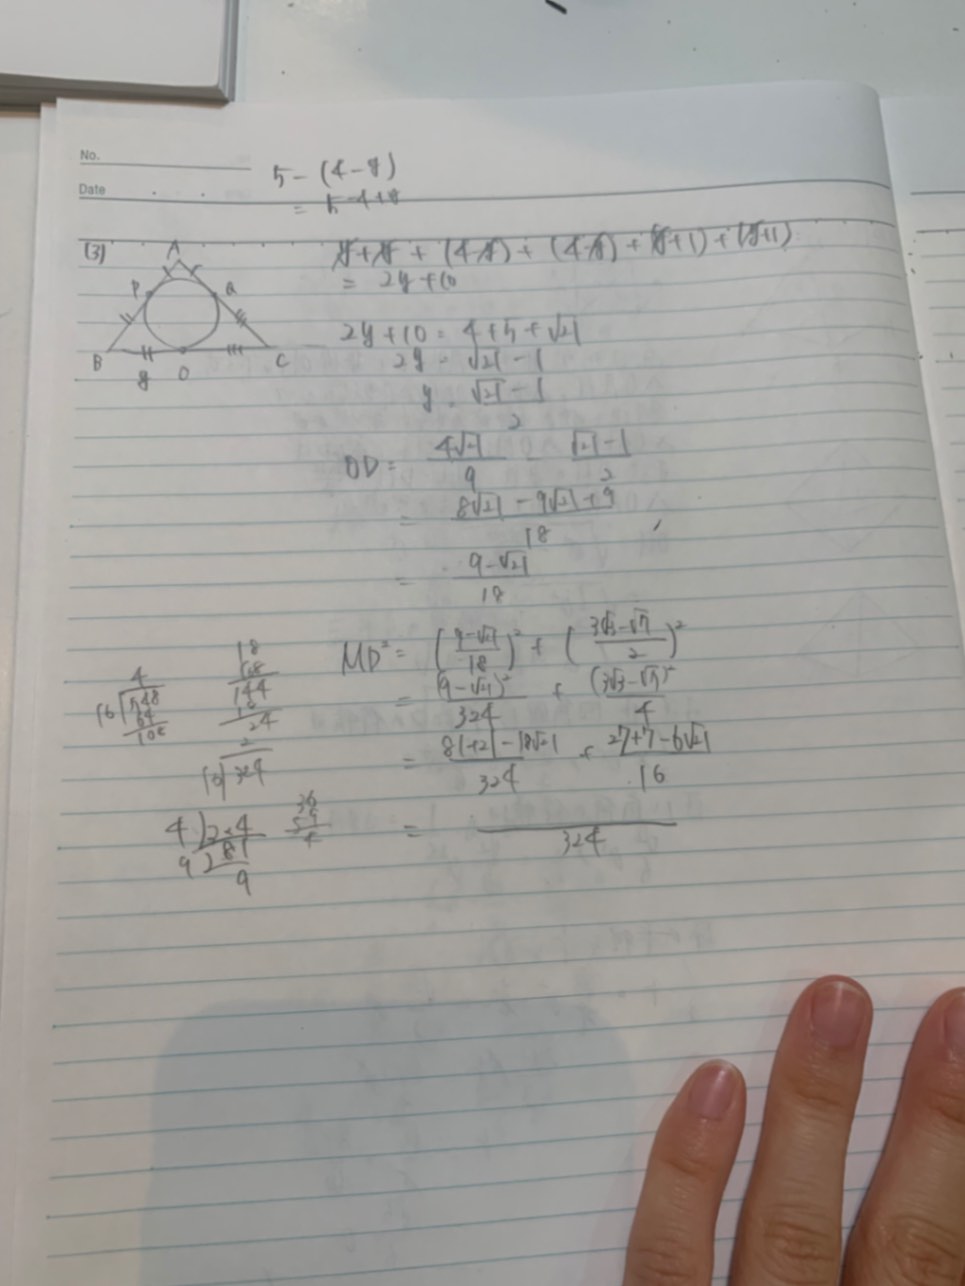 No.
Date
5 - (4-y)
= 5-4+y
(3)
A
P
Q
B
C
y
O
y+y + (4-y) + (4-y) + (y+1) + (y+1)
= 2y+10
2y+10 = 4+5+√21
2y = √21 - 1
y = √21 - 1 / 2
OD = 4√21 / 9 - √21 - 1 / 2
= 8√21 - 9√21 + 9 / 18
= 9-√21 / 18
MD² = (9-√21 / 18)² + (3√3-√7 / 2)²
= (9-√21)² / 324 + (3√3-√7)² / 4
= 81+21-18√21 / 324 + 27+7-6√21 / 16
= / 324
4
18
144
24
2
4
324
81
9
36